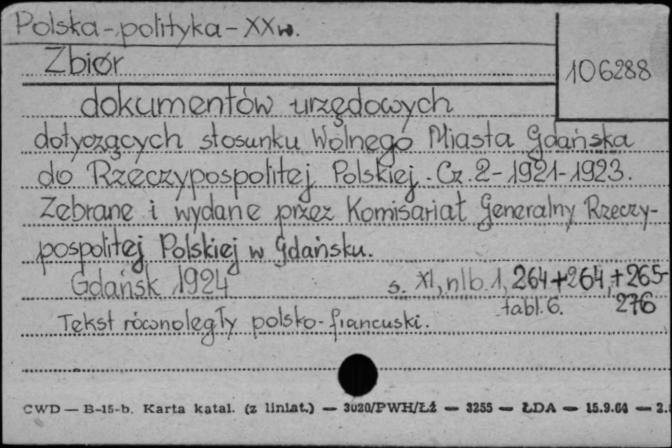 Polska - polityka - XX w.
Zbiór
106288
dokumentów urzędowych
dotyczących stosunku Wolnego Miasta Gdańska
do Rzeczypospolitej Polskiej. Cz. 2 - 1921-1923.
Zebrane i wydane przez Komisariat Generalny Rzeczy-
pospolitej Polskiej w Gdańsku.
Gdańsk 1924 s. XI, nlb. 1, 264+264, +265-
tabl. 6. 276
Tekst równoległy polsko-francuski.
CWD — B-15-b. Karta katal. (z liniat.) — 3020/PWH/Łź — 3255 — ŁDA — 15.9.64 — 2.